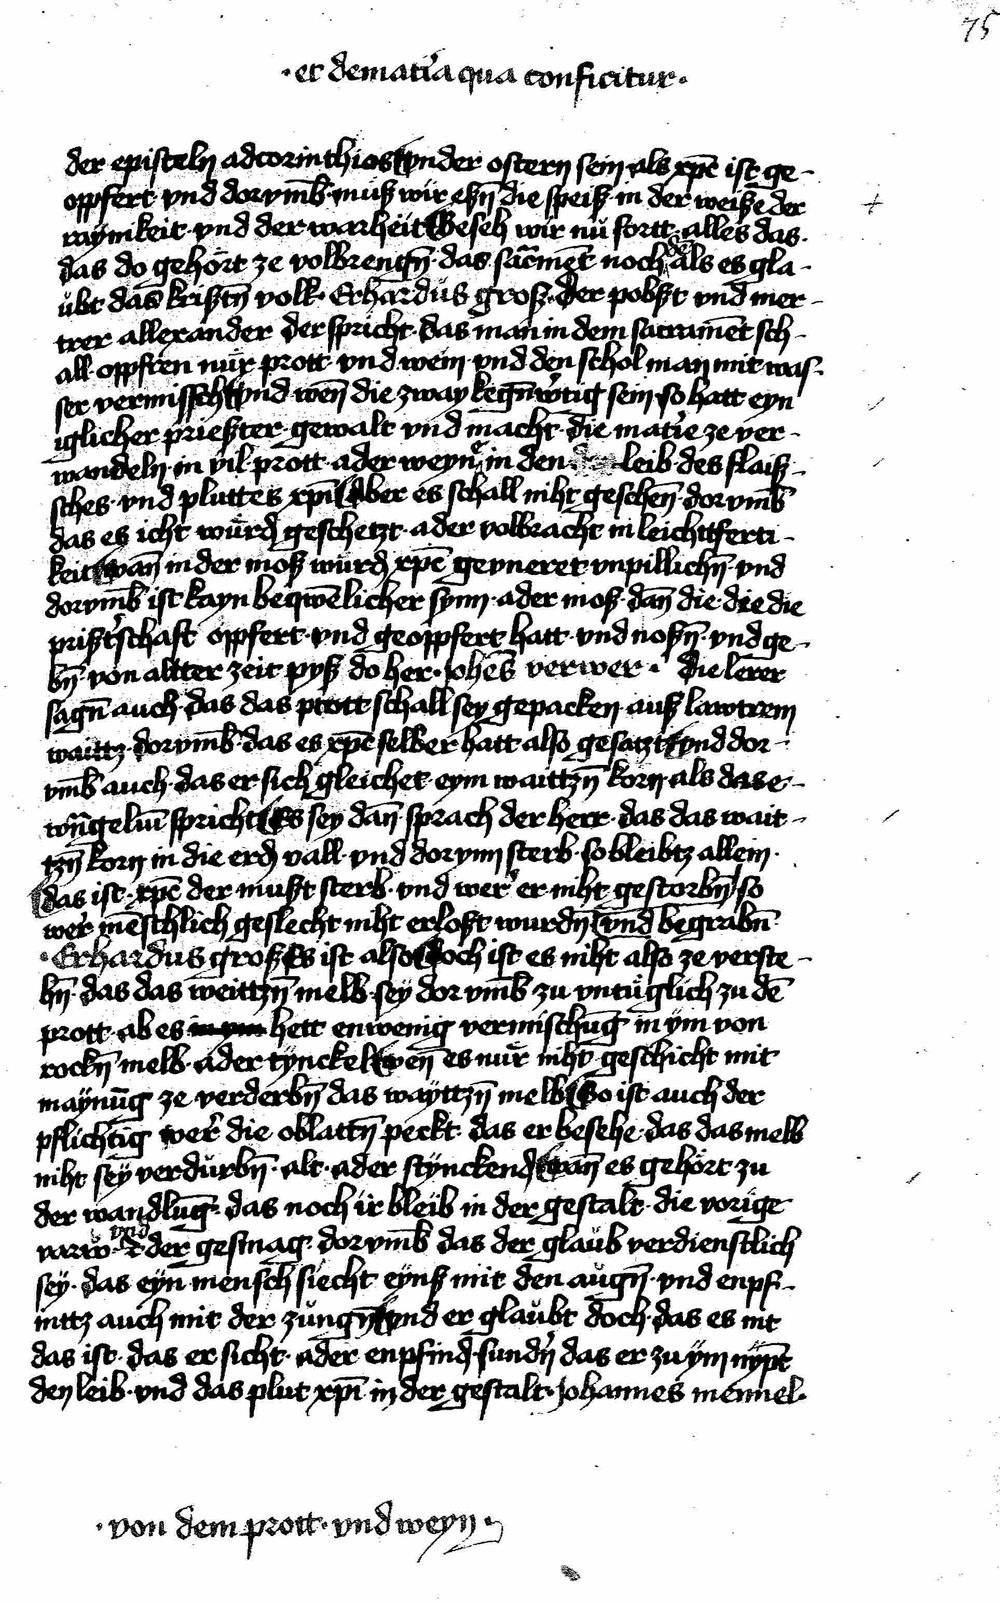 75
·et de mat'ia qua conficitur·
der episteln ad corinthios vnder ostern sein als xpc̄ ist ge-
oppfert vnd dorvmb̄ muß wir eßn̄ die speiß in der weiße der
raÿnikeit vnd der warheit Beseh wir nu fortt alles das·
das do gehört ze volbrengn̄ das sac̄ment noch de als es gla-
ubt das kristn̄ volk· Erhardus groß· der pobst vnd mer-
trer allexander der spricht das man in dem sacramēt sch-
all oppfren nür prott vnd wein vnd den schol man mit was-
ser vermisscht vnd wen̄ die zway kegn̄w'tig sein so hatt eyn
iglicher prießter gewalt vnd macht die mat'ie ze ver-
wandeln in vil prott ader weyn in den leib des flaiß-
sches vnd pluttes xpī Aber es schall niht geschen̄ dorvmb̄
das es icht würd geschetzt ader volbracht in leichttferti-
keit wan̄ in der moß würd xpc̄ geuneret vnpillichn̄ vnd
dorvmb̄ ist kayn beqwēlicher synn ader moß dan̄ die die die
prißt'schaft oppfert vnd geoppfert hatt vnd noßn̄ vnd ge-
bn̄ von altter zeit pyß do her· Johēs verwer· die lerer
sagn̄ auch das das prott schall sey gepacken auß lawtrem
waittz dorvmb̄ das es xpc̄ selber hatt also gesatzt vnd dor-
vmb̄ auch das er sich gleichet eym waittzn̄ korn als das e-
wn̄geliū spricht Es sey dan̄ sprach der herr das das wait-
tzn̄ korn in die erd vall vnd dorynn sterb so bleibtz allein·
das ist xpc̄ der mußt sterb vnd wer' er niht gestorbn̄ so
wer' mēschlich geslecht niht erloßt wurdn̄ vnd begrabn̄
·Erhardus groß Es ist also Doch ist es niht also ze verste-
hn̄ das das weittzn̄ melb sey dorvmb̄ zu vntüglich zu dē
prott ab es in ym hett enwenig vermischūg in ym von
rockn̄ melb ader tynckel wen̄ es nür niht geschicht mit
maÿnūg ze verderbn̄ das wayttzn̄ melb So ist auch der
pflichtig wer' die oblattn̄ peckt das er besehe das das melb
niht sey verdürbn̄ alt ader stynckend wan̄ es gehört zu
der wandlūg das noch ir bleib in der gestalt die vorige
varw vnd der gesmag dorvmb̄ das der glaub verdienstlich
sey das eyn mensch siecht eynß mit den augn̄ vnd enpfi-
nttz auch mit der zungn̄ vnd er glaubt doch das es nit
das ist das er sicht ader enpfind sund'n das er zu ym nÿpt
den leib vnd das plut xpī in der gestalt Johannes mennel·
·von dem prott vnd weyn·